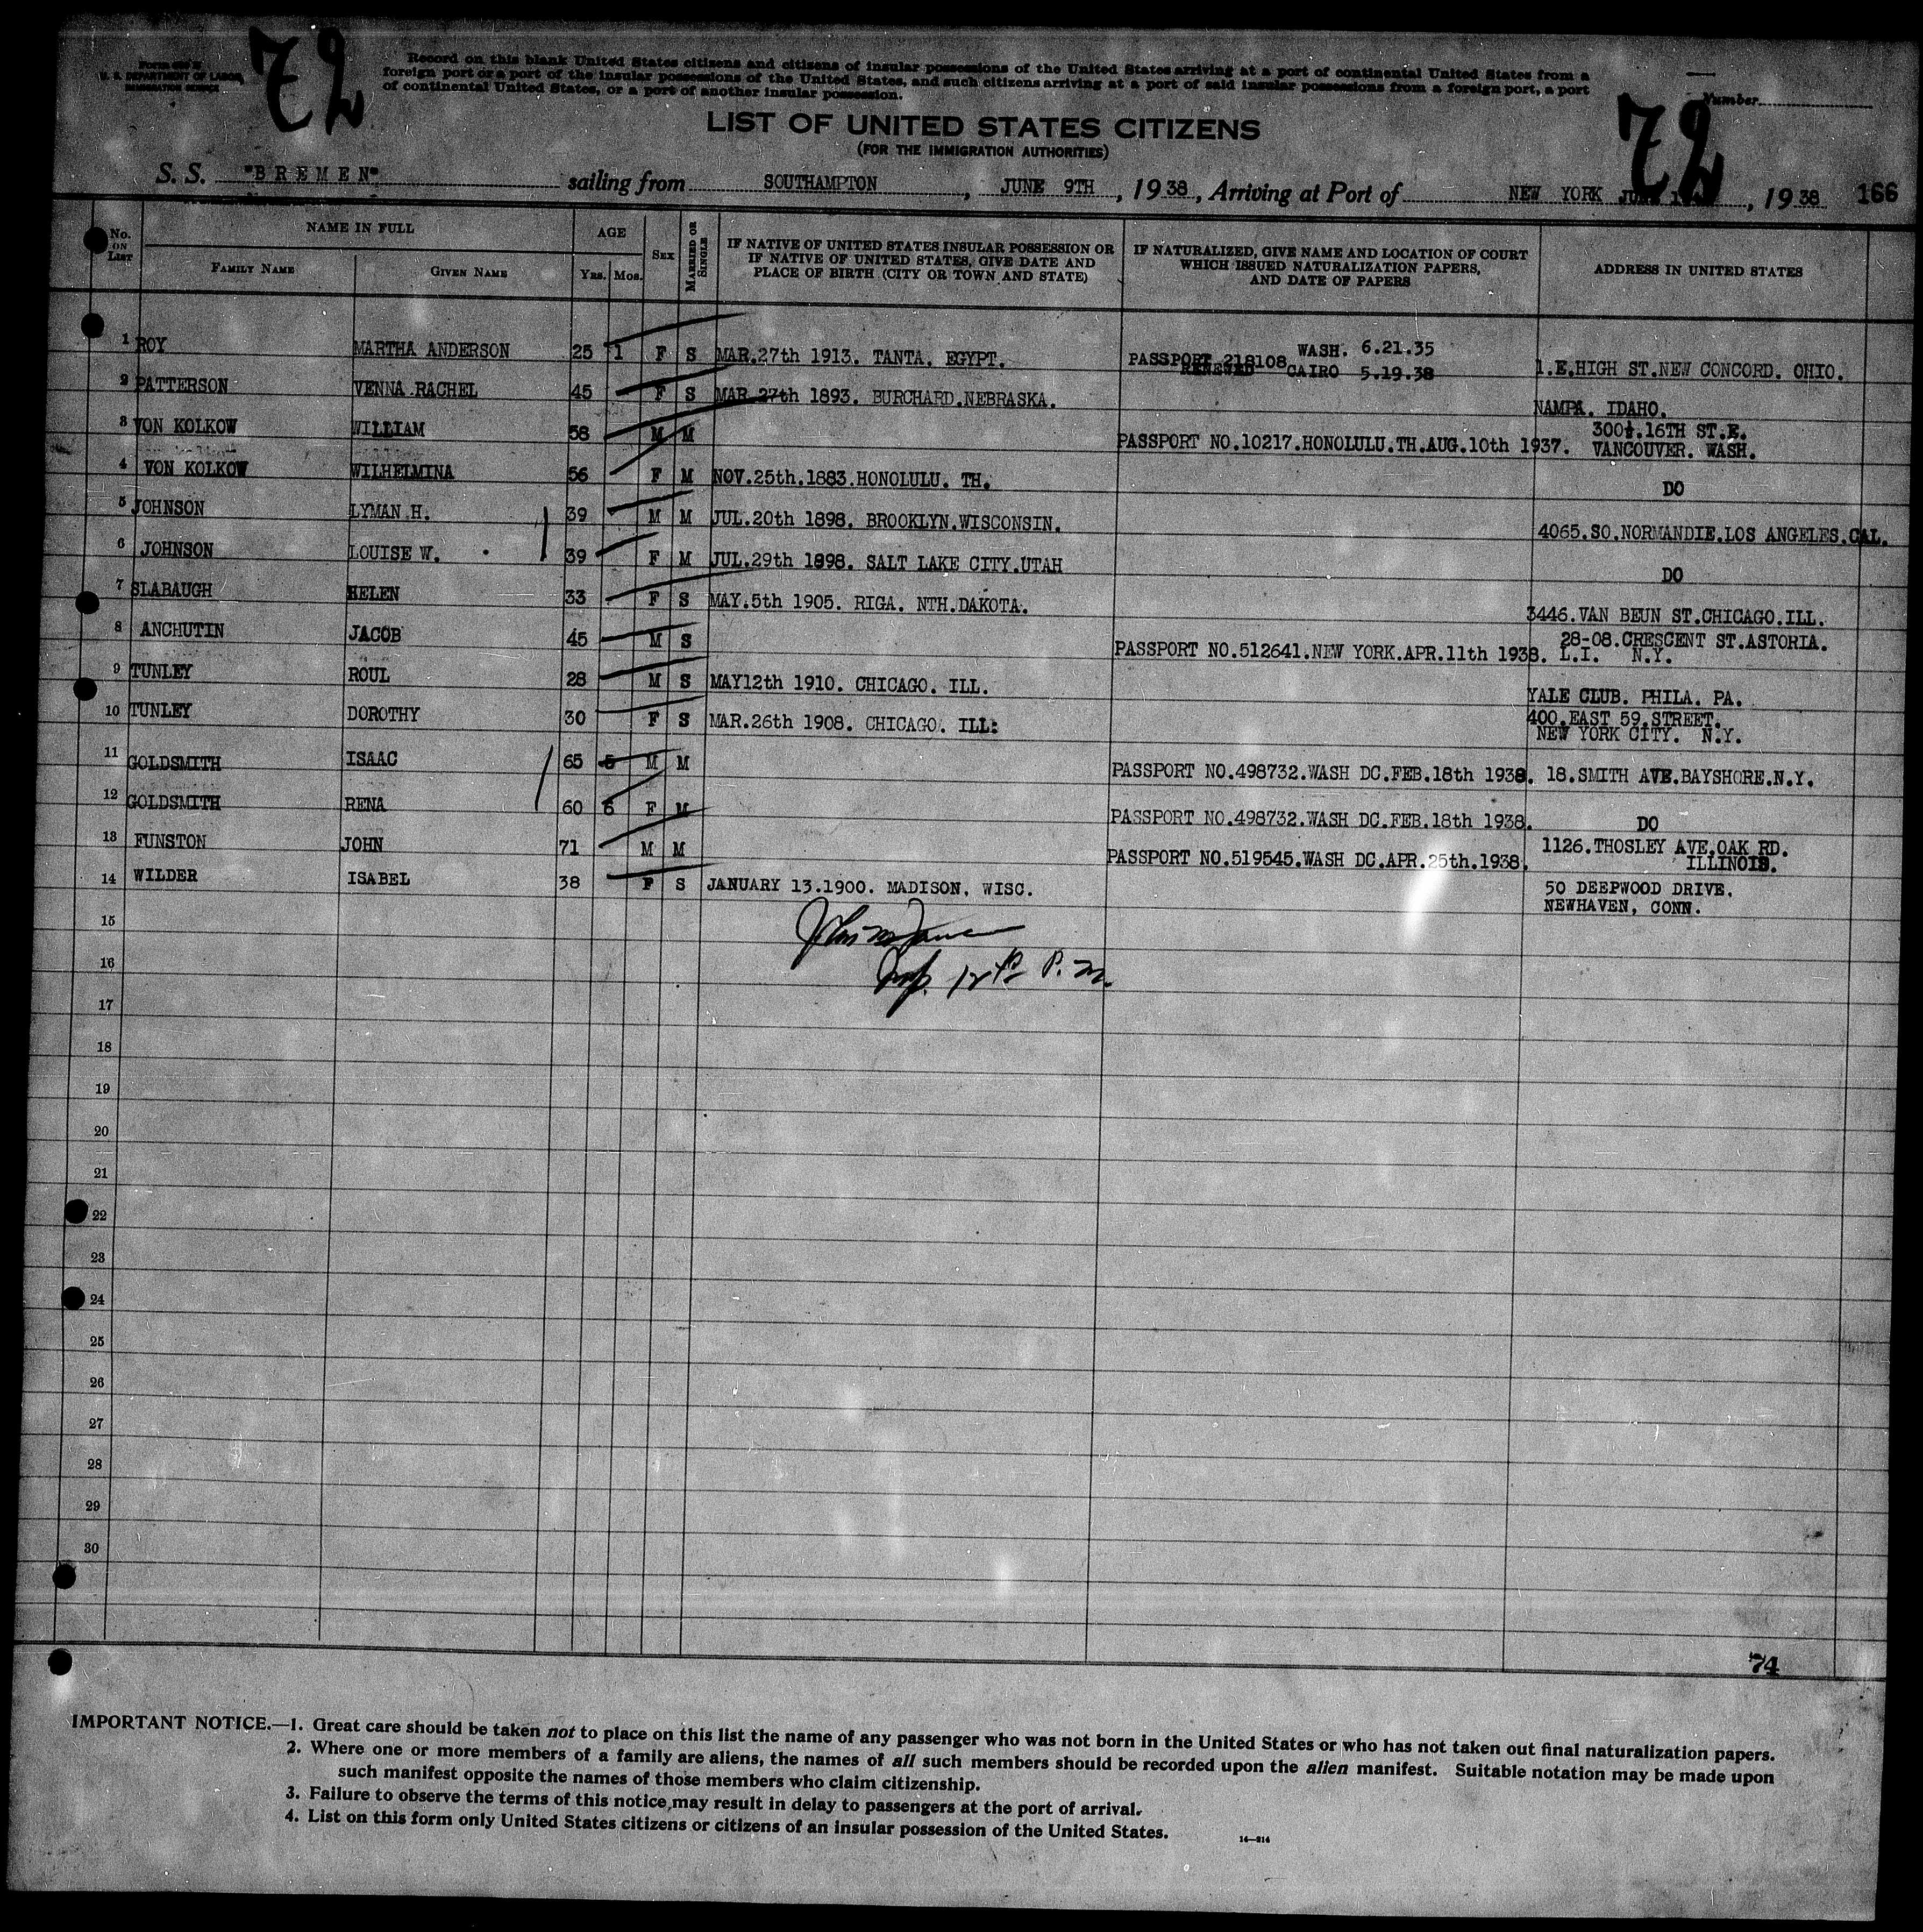 72
U. S. DEPARTMENT OF LABOR
IMMIGRATION SERVICE
Record on this blank United States citizens and citizens of insular possessions of the United States arriving at a port of continental United States from a
foreign port or a port of the insular possessions of the United States, and such citizens arriving at a port of said insular possessions from a foreign port, a port
of continental United States, or a port of another insular possession.
Number
72
LIST OF UNITED STATES CITIZENS
(FOR THE IMMIGRATION AUTHORITIES)
S. S. "BREMEN" sailing from SOUTHAMPTON, JUNE 9TH, 1938, Arriving at Port of NEW YORK, 1938 166
No. ON LIST NAME IN FULL AGE SEX MARRIED OR SINGLE IF NATIVE OF UNITED STATES INSULAR POSSESSION OR IF NATIVE OF UNITED STATES, GIVE DATE AND PLACE OF BIRTH (CITY OR TOWN AND STATE) IF NATURALIZED, GIVE NAME AND LOCATION OF COURT WHICH ISSUED NATURALIZATION PAPERS, AND DATE OF PAPERS ADDRESS IN UNITED STATES
FAMILY NAME GIVEN NAME YRS. MOS.
1 ROY MARTHA ANDERSON 25 1 F S MAR.27th 1913. TANTA. EGYPT. PASSPORT 218108 WASH. 6.21.35 RENEWED CAIRO 5.19.38 1.E.HIGH ST.NEW CONCORD. OHIO.
2 PATTERSON VENNA RACHEL 45 F S MAR 27th 1893. BURCHARD.NEBRASKA. NAMPA. IDAHO.
3 VON KOLKOW WILLIAM 58 M M PASSPORT NO.10217.HONOLULU.TH.AUG.10th 1937. 300½.16TH ST.E. VANCOUVER. WASH.
4 VON KOLKOW WILHELMINA 56 F M NOV.25th.1883.HONOLULU. TH. DO
5 JOHNSON LYMAN H. 39 M M JUL.20th 1898. BROOKLYN.WISCONSIN. 4065.SO.NORMANDIE.LOS ANGELES.CAL.
6 JOHNSON LOUISE W. 39 F M JUL.29th 1898. SALT LAKE CITY.UTAH DO
7 SLABAUGH HELEN 33 F S MAY.5th 1905. RIGA. NTH.DAKOTA. 3446.VAN BEUN ST.CHICAGO.ILL.
8 ANCHUTIN JACOB 45 M S PASSPORT NO.512641.NEW YORK.APR.11th 1938. 28-08.CRESCENT ST.ASTORIA. L.I. N.Y.
9 TUNLEY ROUL 28 M S MAY12th 1910. CHICAGO. ILL. YALE CLUB. PHILA. PA.
10 TUNLEY DOROTHY 30 F S MAR.26th 1908. CHICAGO. ILL: 400.EAST 59.STREET. NEW YORK CITY. N.Y.
11 GOLDSMITH ISAAC 65 5 M M PASSPORT NO.498732.WASH DC.FEB.18th 1938. 18.SMITH AVE.BAYSHORE.N.Y.
12 GOLDSMITH RENA 60 6 F M PASSPORT NO.498732.WASH DC.FEB.18th 1938. DO
13 FUNSTON JOHN 71 M M PASSPORT NO.519545.WASH DC.APR.25th.1938. 1126.THOSLEY AVE.OAK RD. ILLINOIS.
14 WILDER ISABEL 38 F S JANUARY 13.1900. MADISON, WISC. 50 DEEPWOOD DRIVE. NEWHAVEN, CONN.
15
16 P. M.
17
18
19
20
21
22
23
24
25
26
27
28
29
30
74
IMPORTANT NOTICE.—1. Great care should be taken not to place on this list the name of any passenger who was not born in the United States or who has not taken out final naturalization papers.
2. Where one or more members of a family are aliens, the names of all such members should be recorded upon the alien manifest. Suitable notation may be made upon
such manifest opposite the names of those members who claim citizenship.
3. Failure to observe the terms of this notice may result in delay to passengers at the port of arrival.
4. List on this form only United States citizens or citizens of an insular possession of the United States.
14—214